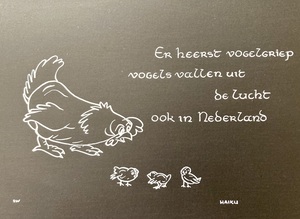 Er heerst vogelgriep
vogels vallen uit
de lucht
ook in Nederland
HAIKU